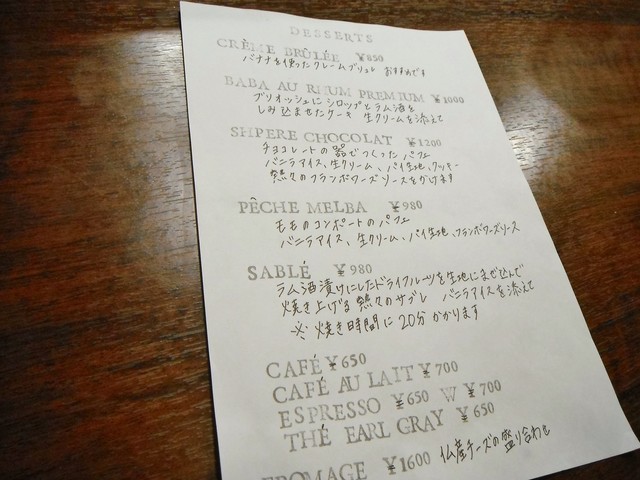 DESSERTS
CRÈME BRÛLÉE ¥850
バナナを使ったクレームブリュレ おすすめです
BABA AU RHUM PREMIUM ¥1000
ブリオッシュにシロップとラム酒を
しみ込ませたケーキ 生クリームを添えて
SHPERE CHOCOLAT ¥1200
チョコレートの器でつくったパフェ
バニラアイス、生クリーム、パイ生地、クッキー
熱々のフランボワーズソースをかけます
PÊCHE MELBA ¥980
もものコンポートのパフェ
バニラアイス、生クリーム、パイ生地、フランボワーズソース
SABLÉ ¥980
ラム酒漬けにしたドライフルーツを生地にまぜ込んで
焼き上げる熱々のサブレ バニラアイスを添えて
※ 焼き時間に20分かかります
CAFÉ ¥650
CAFÉ AU LAIT ¥700
ESPRESSO ¥650 W ¥700
THÉ EARL GRAY ¥650
FROMAGE ¥1600 仏産チーズの盛り合わせ